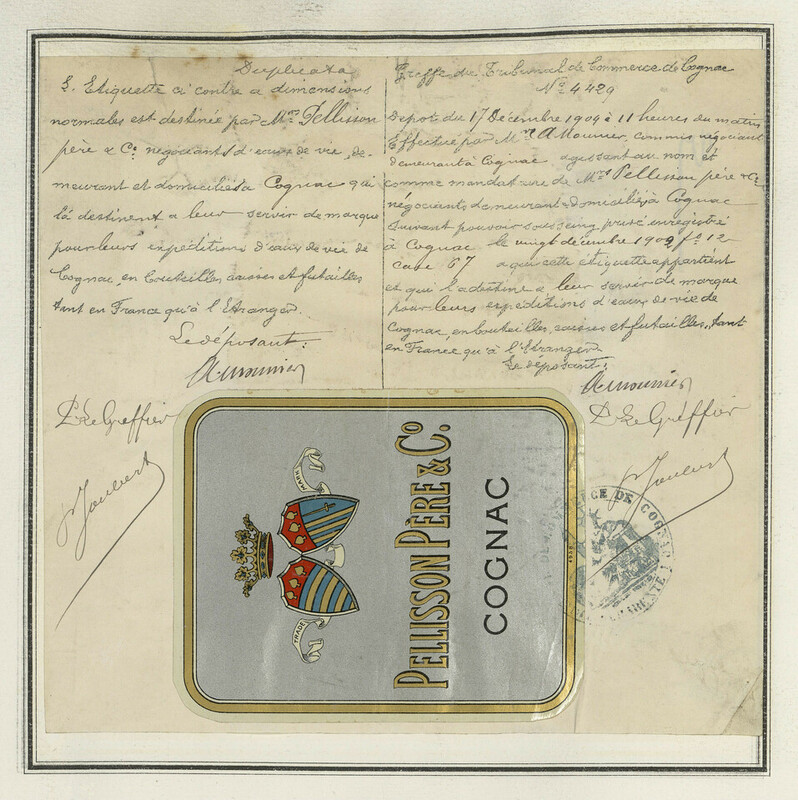 Duplicata
L. Etiquette ci contre a dimensions
normales est destinée par Mrs Pellisson
père & Co négociants d'eaux de vie, de-
meurant et domiciliés à Cognac qui
la destinent a leur servir de marque
pour leurs expéditions d'eaux de vie de
Cognac, en bouteilles caisses et futailles
tant en France qu'à l'Etranger.
Le déposant:
A Mounier
P. Le Greffier
Joubert
Greffe du Tribunal de Commerce de Cognac
No 4429
Depot du 17 Décembre 1904 à 11 heures du matin
Effectué par Mr A Mounier, commis négociant
demeurant à Cognac, agissant au nom et
comme mandataire de Mrs Pellisson père & Co
négociants demeurant & domiciliés à Cognac
Suivant pouvoir sousseing privé enregistré
à Cognac le vingt décembre 1902 fo 12
case 67 a qui cette étiquette appartient
et qui la destine a leur servir de marque
pour leurs expéditions d'eaux de vie de
Cognac, en bouteilles, caisses et futailles, tant
en France qu'à l'étranger
Le déposant:
A Mounier
P. Le Greffier
Joubert
TRADE MARK
PELLISSON PÈRE & CO.
COGNAC
DE COGNAC